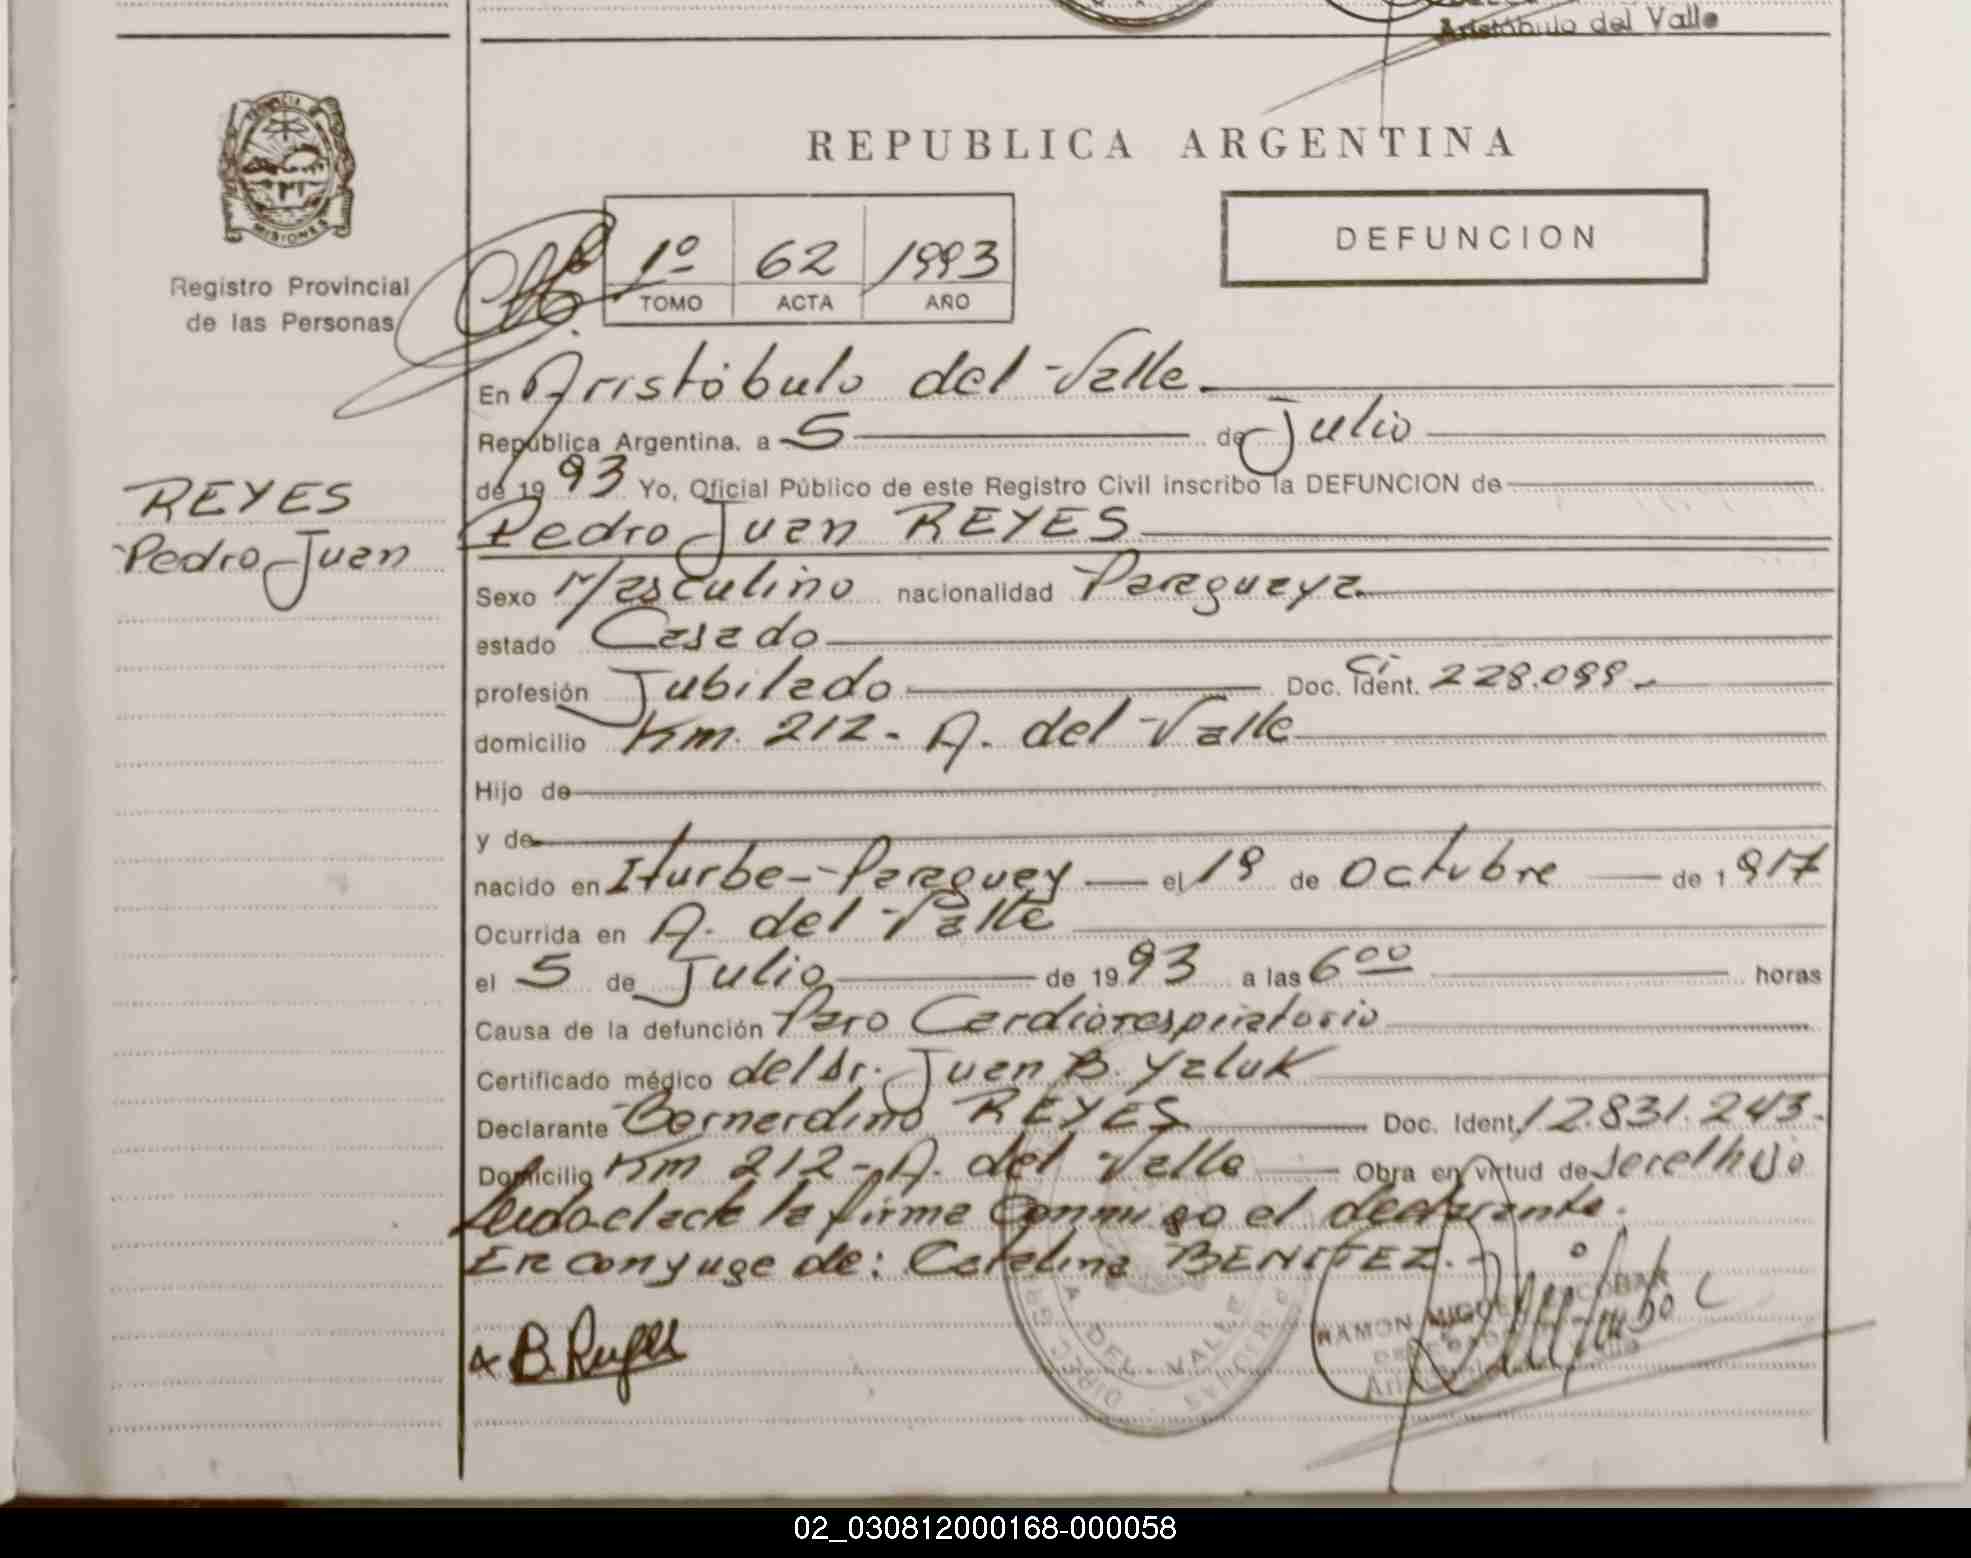 Aristóbulo del Valle
PROVINCIA DE
MISIONES
Registro Provincial
de las Personas
REYES
Pedro Juan
REPUBLICA ARGENTINA
DEFUNCION
1º 62 1993
TOMO ACTA AÑO
En Aristóbulo del Valle
República Argentina, a 5 de Julio
de 19 93 Yo, Oficial Público de este Registro Civil inscribo la DEFUNCION de
Pedro Juan REYES
Sexo Masculino nacionalidad Paraguaya
estado Casado
profesión Jubilado Doc. Ident. Ci 228.099.-
domicilio Km. 212 - A. del Valle
Hijo de
y de
nacido en Iturbe - Paraguay el 19 de Octubre de 1 917
Ocurrida en A. del Valle
el 5 de Julio de 19 93 a las 6 00 horas
Causa de la defunción Paro Cardiorespiratorio
Certificado médico del Dr. Juan B. Yaluk
Declarante Bernardino REYES Doc. Ident. 12.831.243.-
Domicilio Km 212 - A. del Valle Obra en virtud de ser el hijo
Leida el acta la firma Conmigo el declarante.
Era conyuge de: Catalina BENITEZ.-
x B. Reyes
A. DEL VALLE
RAMON MIGUEL ESCOBAR
02_030812000168-000058